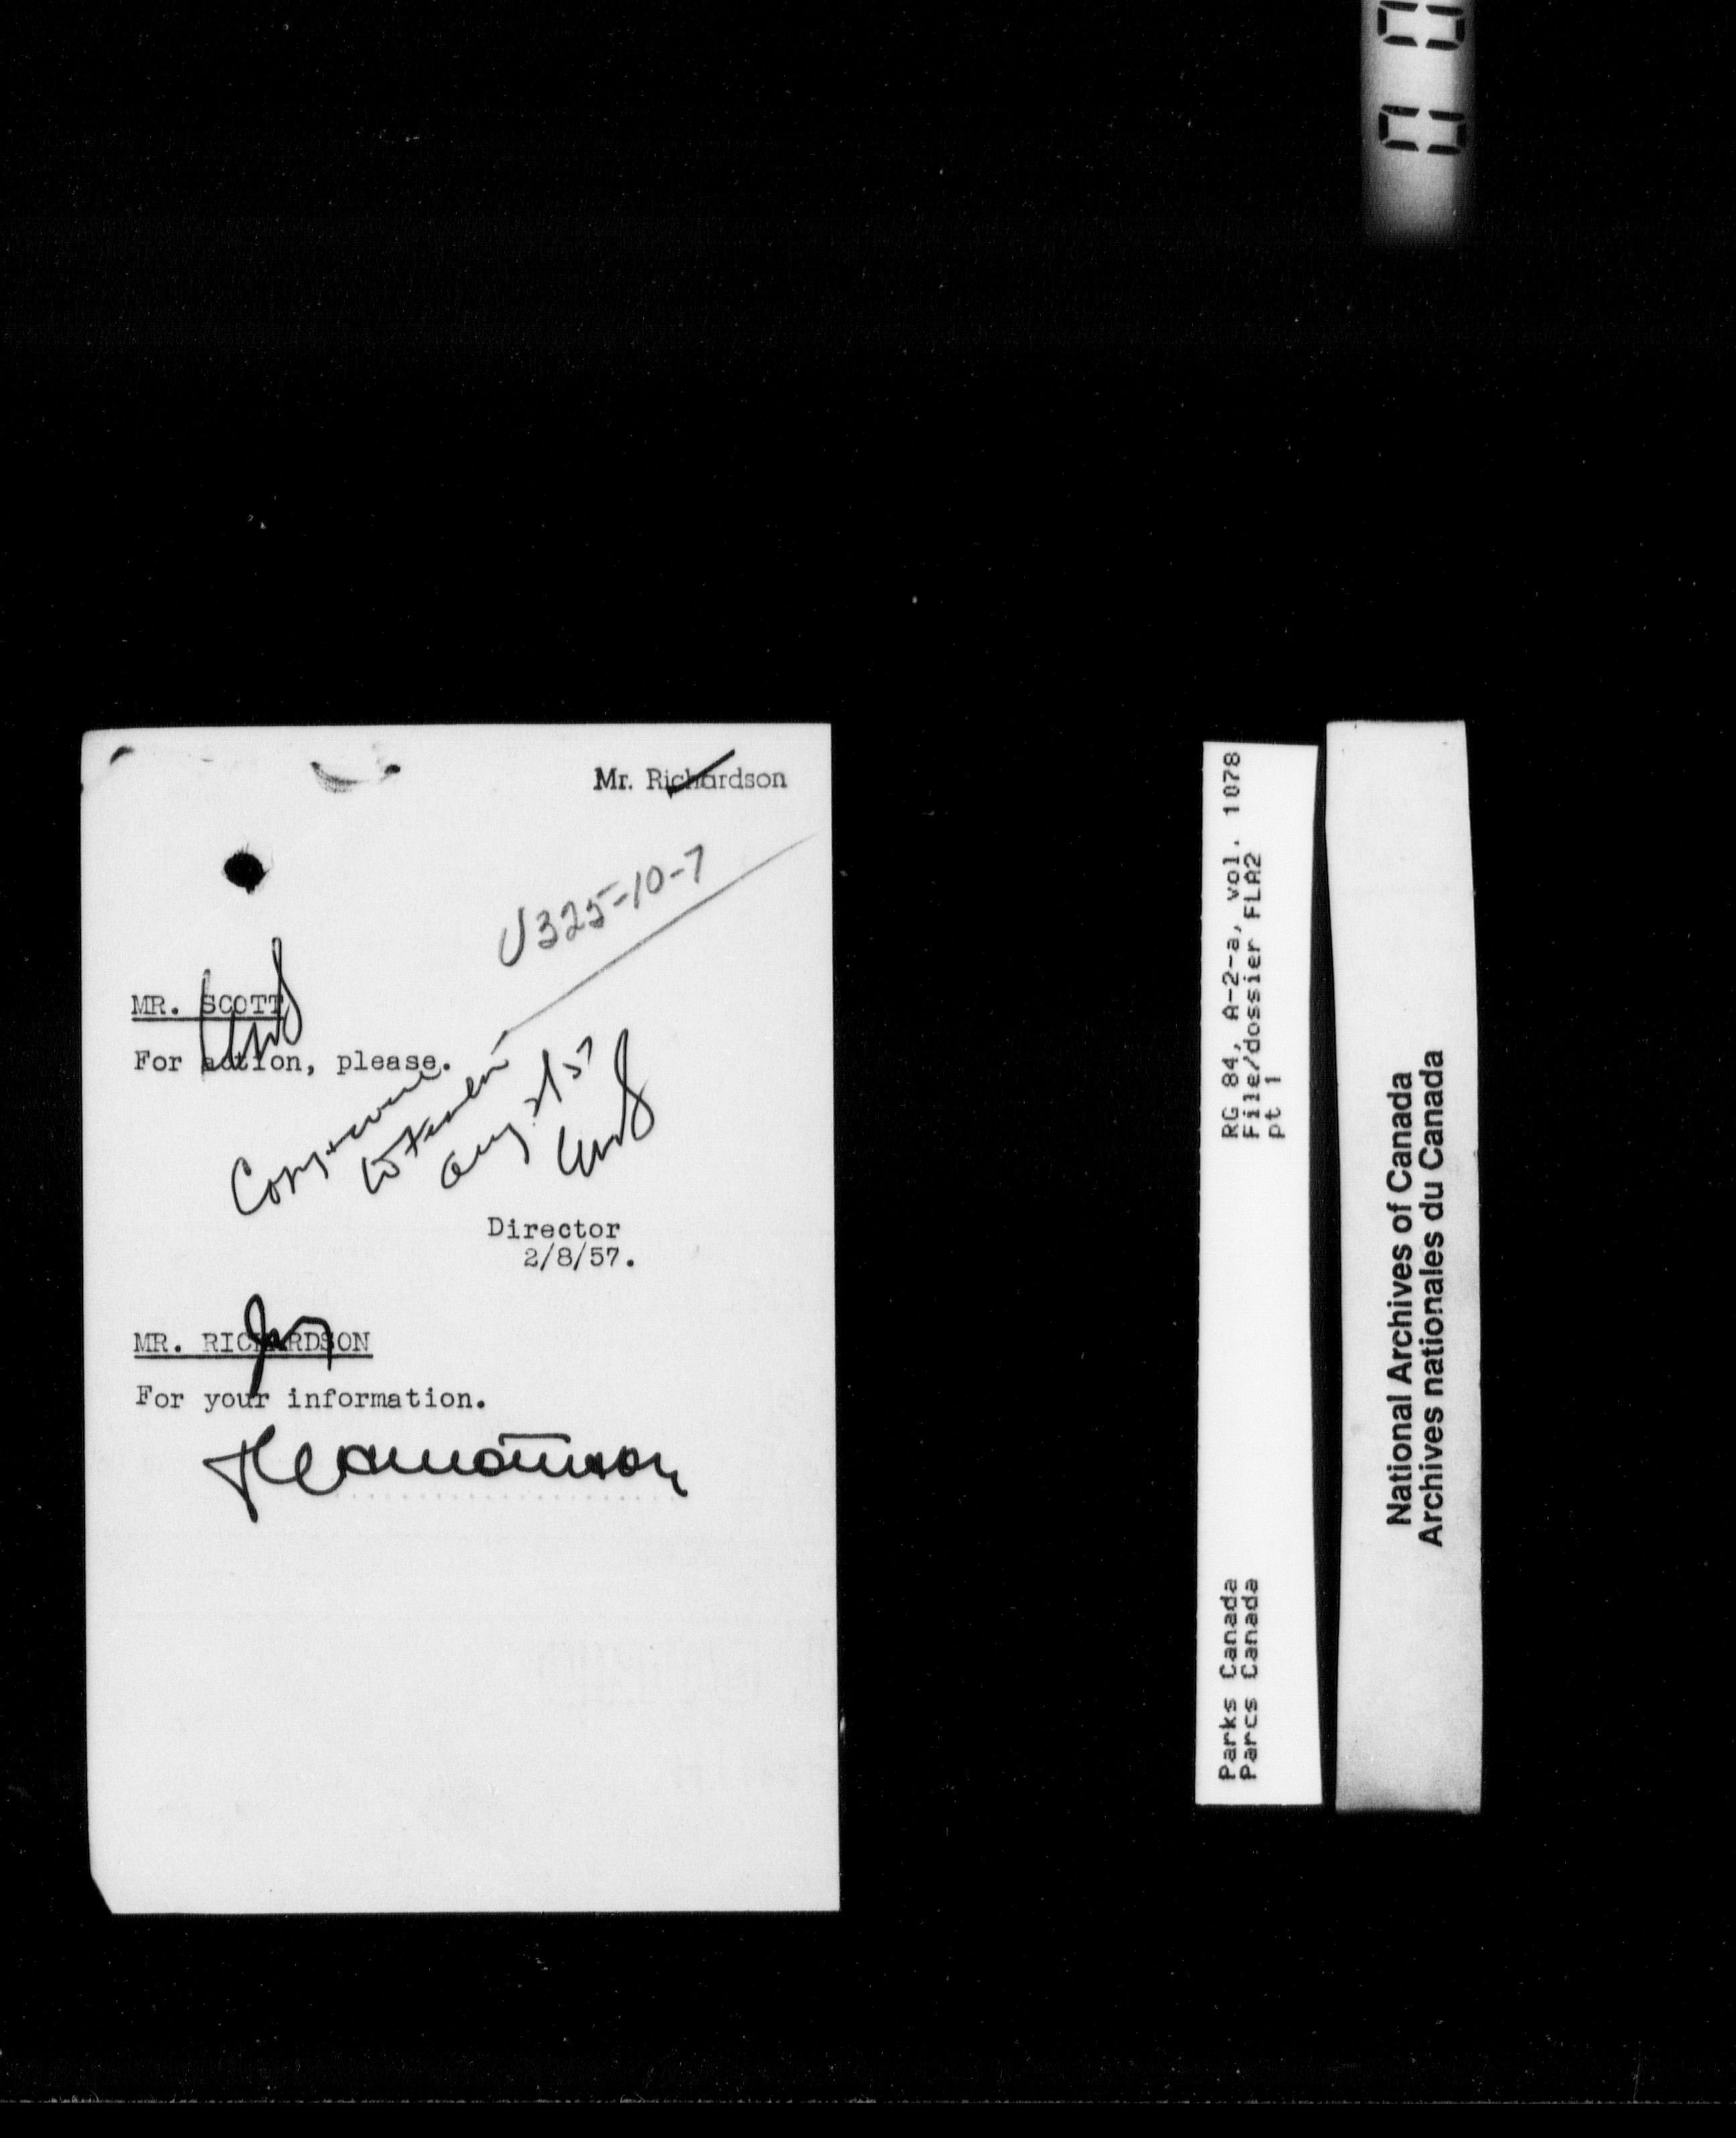 Mr. Richardson
U325-10-7
MR. SCOTT
For action, please.
Copy
to
Aug 2/57
Director
2/8/57.
MR. RICHARDSON
For your information.
RG 84, A-2-a, vol. 1078
File/dossier FLA2
pt 1
Parks Canada
Parcs Canada
National Archives of Canada
Archives nationales du Canada